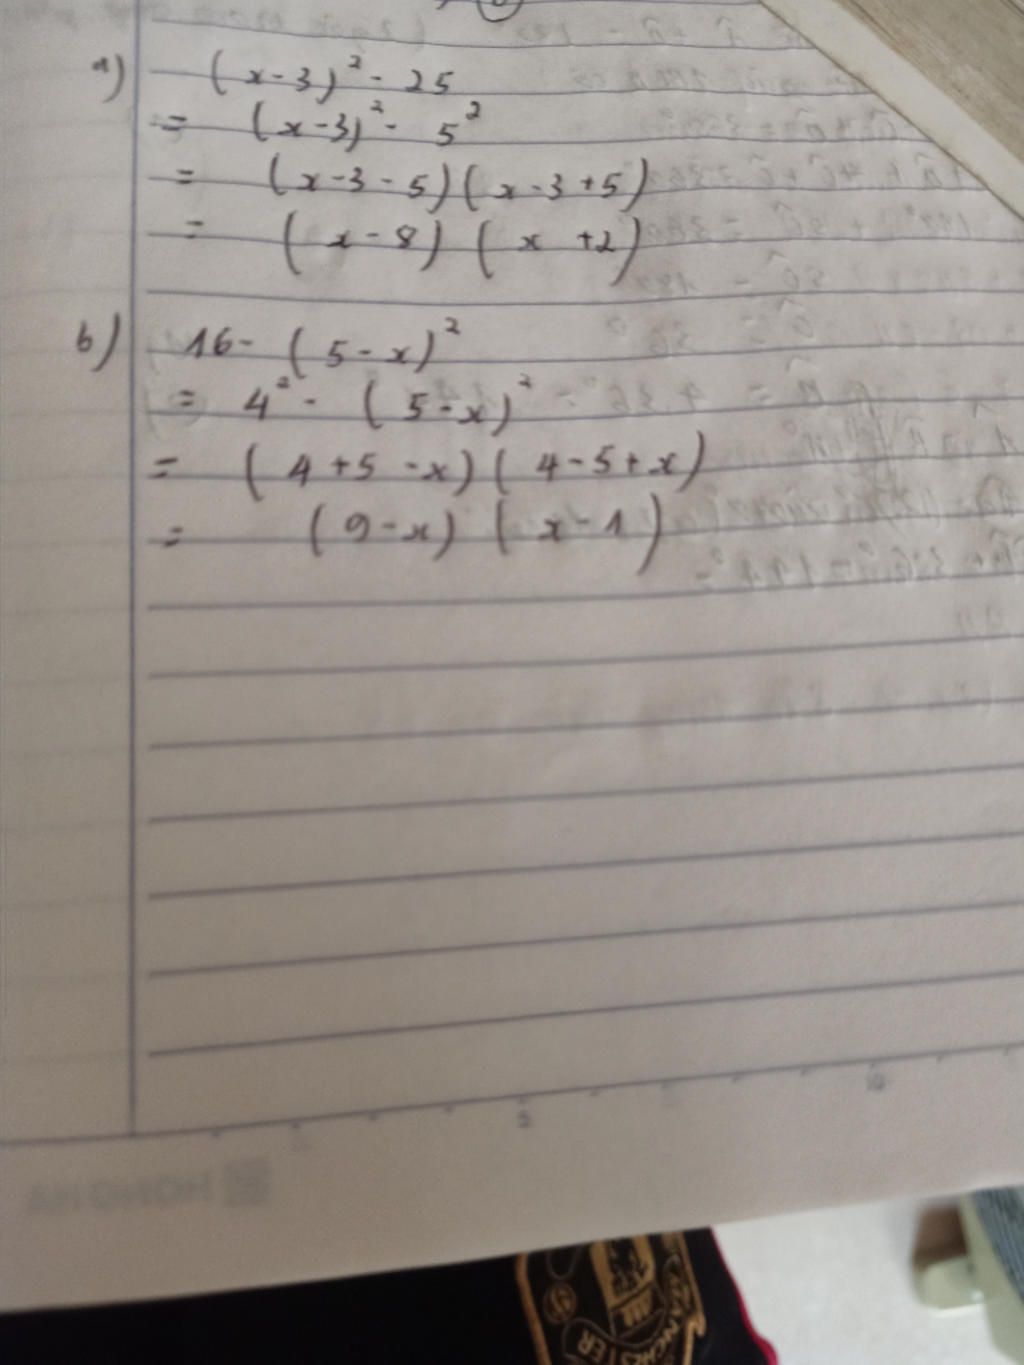 a) (x-3)² - 25
= (x-3)² - 5²
= (x-3-5)(x-3+5)
= (x-8)(x+2)
b) 16 - (5-x)²
= 4² - (5-x)²
= (4+5-x)(4-5+x)
= (9-x)(x-1)
5
10
MANCHESTER